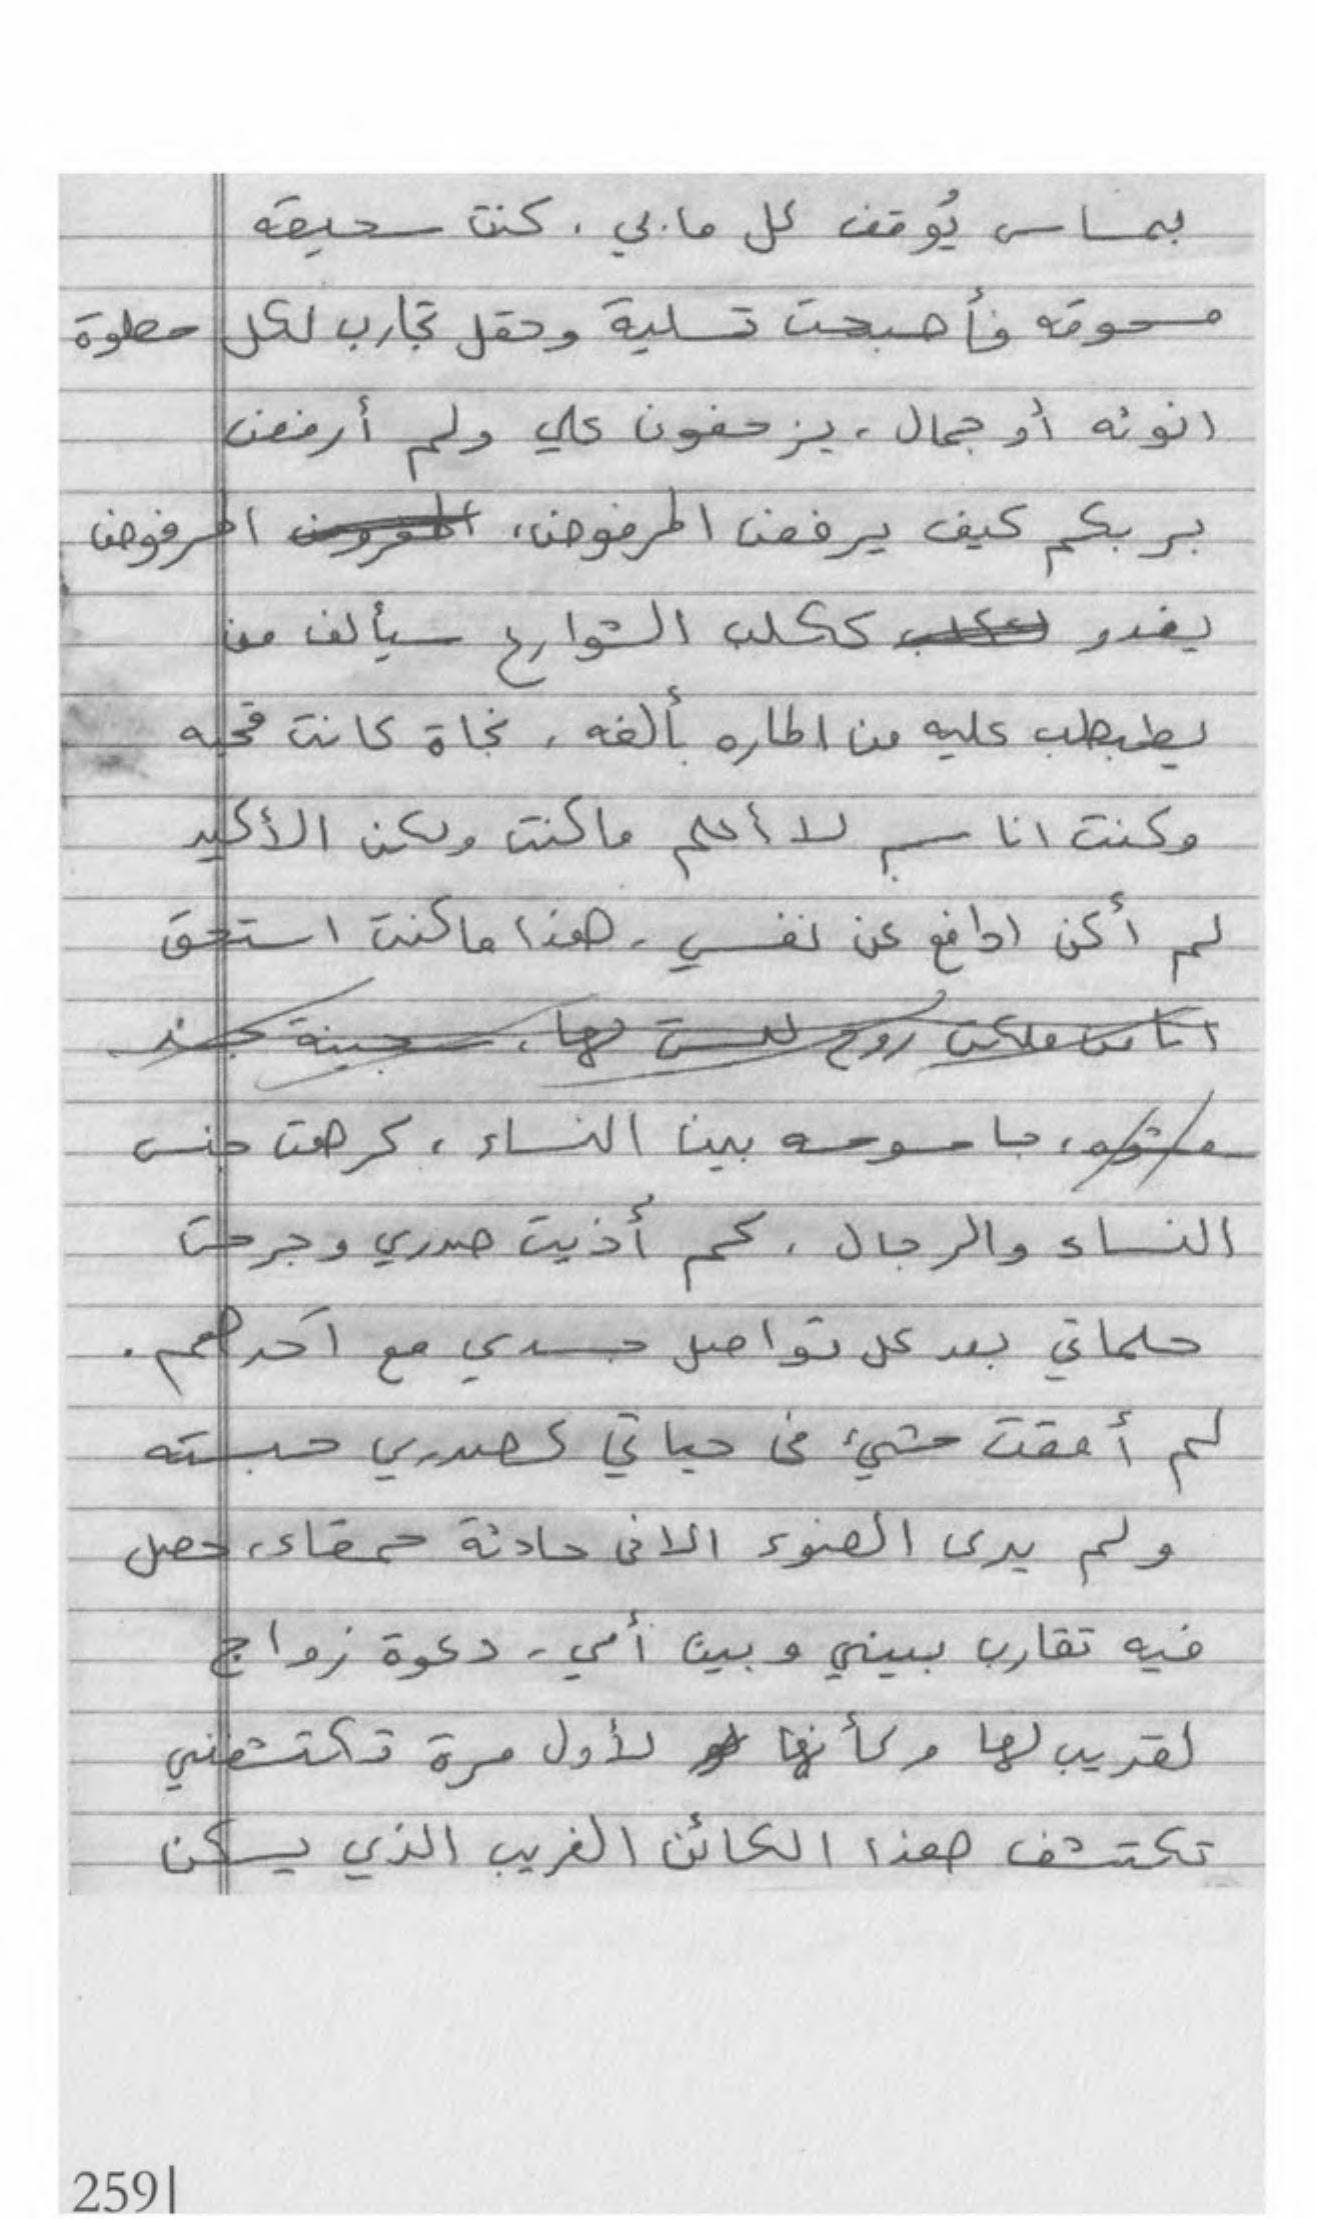 بمساس يُوقف كل ما بي. كنت سحيقه
مسحوقه فأصبحت تسلية وحقل تجارب لكل حطوة
انوثه أو جمال، يزحفون علي ولم أرفض
بربكم كيف يرفض المرفوض، المرفوض
يغدو ككلب الشوارع سيألف من
يطبطب عليه من الماره بألفه، نجاة كانت قحبه
وكنت انا لا أعلم ما كنت ولكن الأكيد
لم أكن ادافع عن نفسي، هذا ما كنت استحق
انا روح ليست لها، سجينة جسد
مشوه، جاسوسه بين النساء، كرهت جنس
النساء والرجال، كم أذيت صدري وجرحت
حلماتي بعد كل تواصل جسدي مع احدهم.
لم أمقت شيئ في حياتي كصدري حبسته
ولم يرى الضوء الا في حادثة حمقاء، حصل
فيه تقارب بيني وبين أمي، دعوة زواج
لقريب لها وكأنها لأول مرة تكتشفني
تكتشف هذا الكائن الغريب الذي يسكن
259|